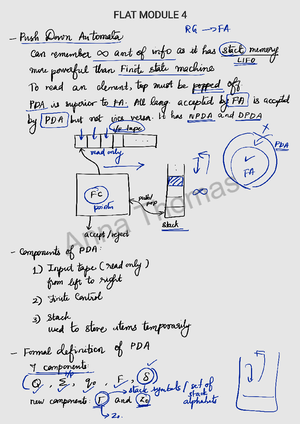 FLAT MODULE 4
RG → FA
- Push Down Automata
Can remember ∞ amt of info as it has stack memory
LIFO
more powerful than Finite state machine
To read an element, top must be popped off
PDA is superior to FA. All lang accepted by FA is accepted
by PDA but not vice versa. it has NPDA and DPDA
i/p tape
read only
X
PDA
FA
FC
push/
pop
∞
accept/reject
stack
Anna Thomas
- Components of PDA:
1) Input tape (read only)
from left to right
2) Finite Control
3) Stack
used to store items temporarily
- Formal definition of PDA
7 components:
(Q, Σ, q₀, F, δ)
stack symbols / set of
stack
alphabets
new components: Γ and Z₀
Z₀